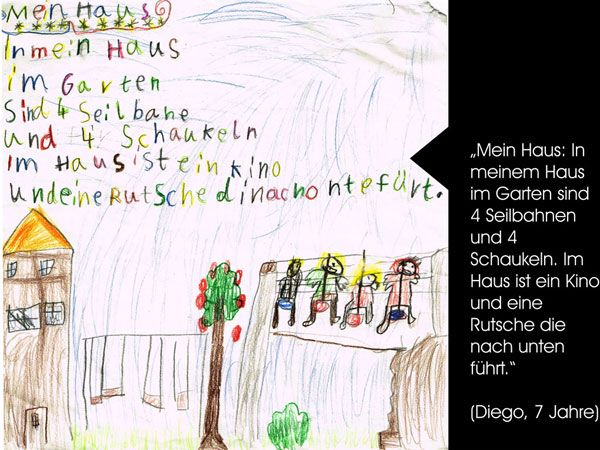 Mein Haus
In mein Haus
im Garten
Sind 4 Seilbane
und 4 Schaukeln
im Haus ist ein kino
und eine Rutsche di nach ontefürt.
„Mein Haus: In
meinem Haus
im Garten sind
4 Seilbahnen
und 4
Schaukeln. Im
Haus ist ein Kino
und eine
Rutsche die
nach unten
führt.“
(Diego, 7 Jahre)